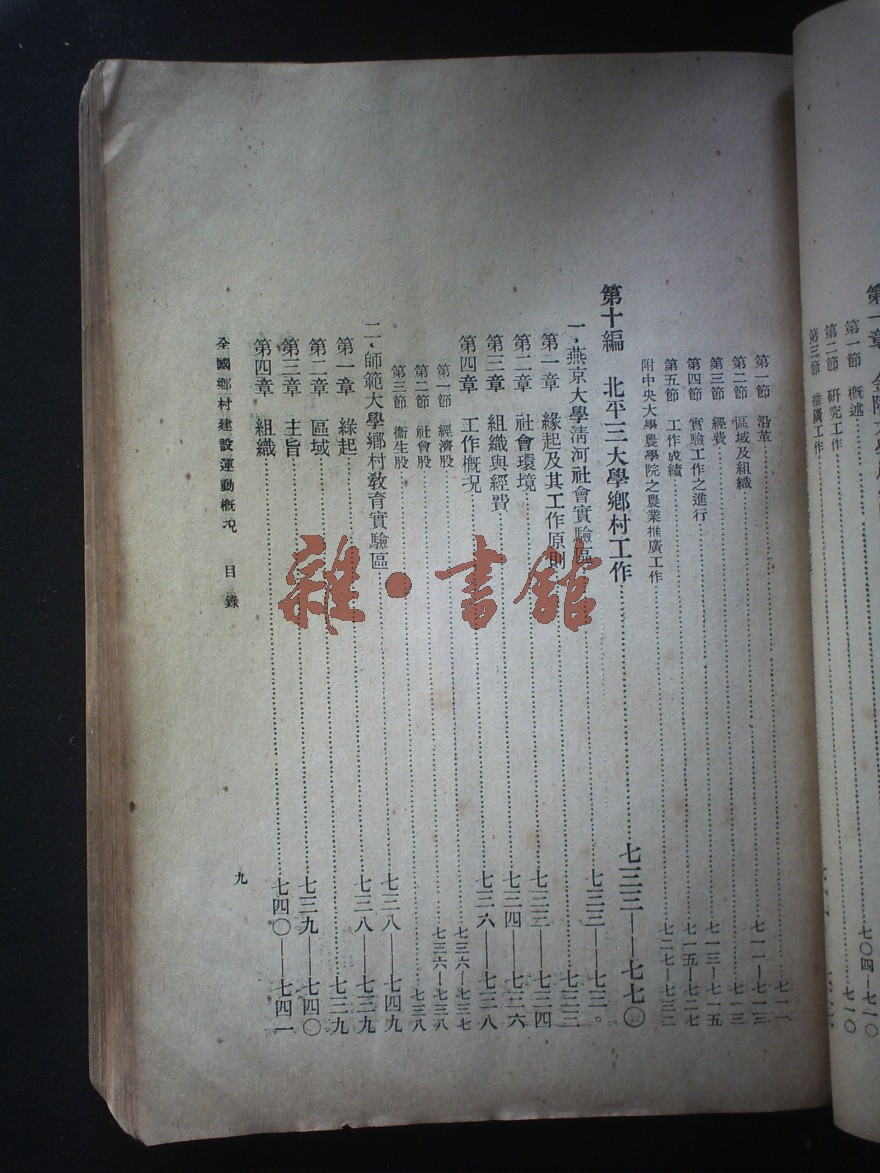 第一節　概述……七〇四—七一〇
第二節　研究工作……七一〇
第三節　推廣工作……
第一節　沿革……七一一
第二節　區域及組織……七一一—七一三
第三節　經費……七一三
第四節　實驗工作之進行……七一三—七一五
第五節　工作成績……七一五—七二七
附中央大學農學院之農業推廣工作……七二七—七三二
第十編　北平三大學鄉村工作……七三三—七七〇
一．燕京大學清河社會實驗區……七三三—七三。
第一章　緣起及其工作原則……七三三
第二章　社會環境……七三三—七三四
第三章　組織與經費……七三四—七三六
第四章　工作概況……七三六—七三八
第一節　經濟股……七三六—七三七
第二節　社會股……七三六—七三八
第三節　衞生股……七三八
二．師範大學鄉村教育實驗區……七三八—七四九
第一章　緣起……七三八—七三九
第二章　區域……七三九
第三章　主旨……七三九—七四〇
第四章　組織……七四〇—七四一
全國鄉村建設運動概況　目錄　九
雜·書館